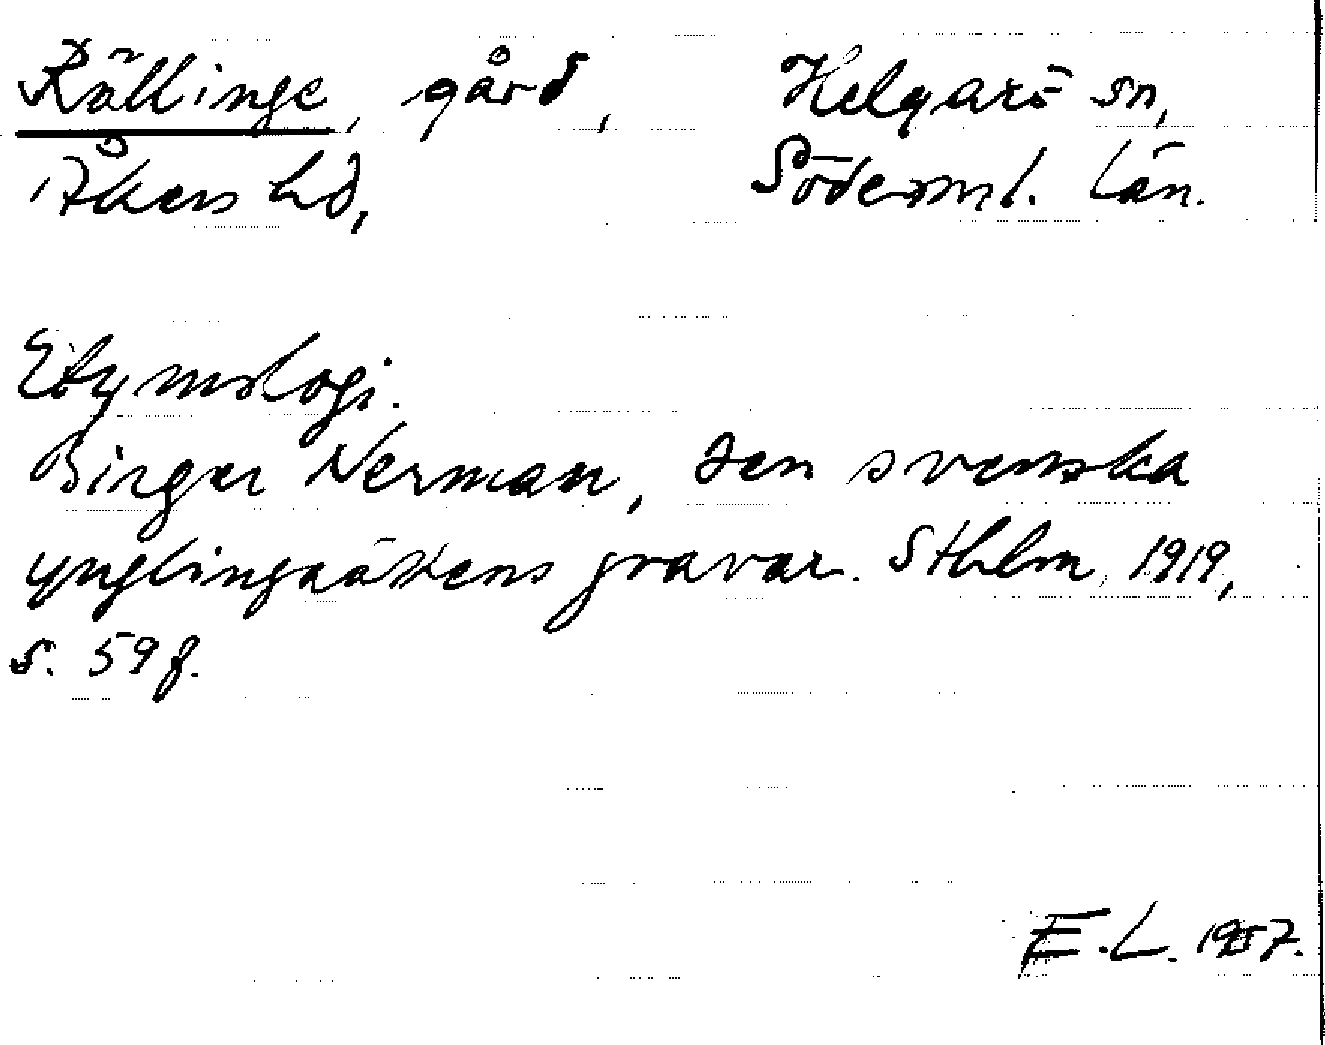 Rällinge, gård, Helgarö sn,
Åkers hd, Söderml. län.
Etymologi.
Birger Nerman, Den svenska
ynglingaättens gravar. Sthlm, 1919,
s. 59 f.
E.L. 1957.